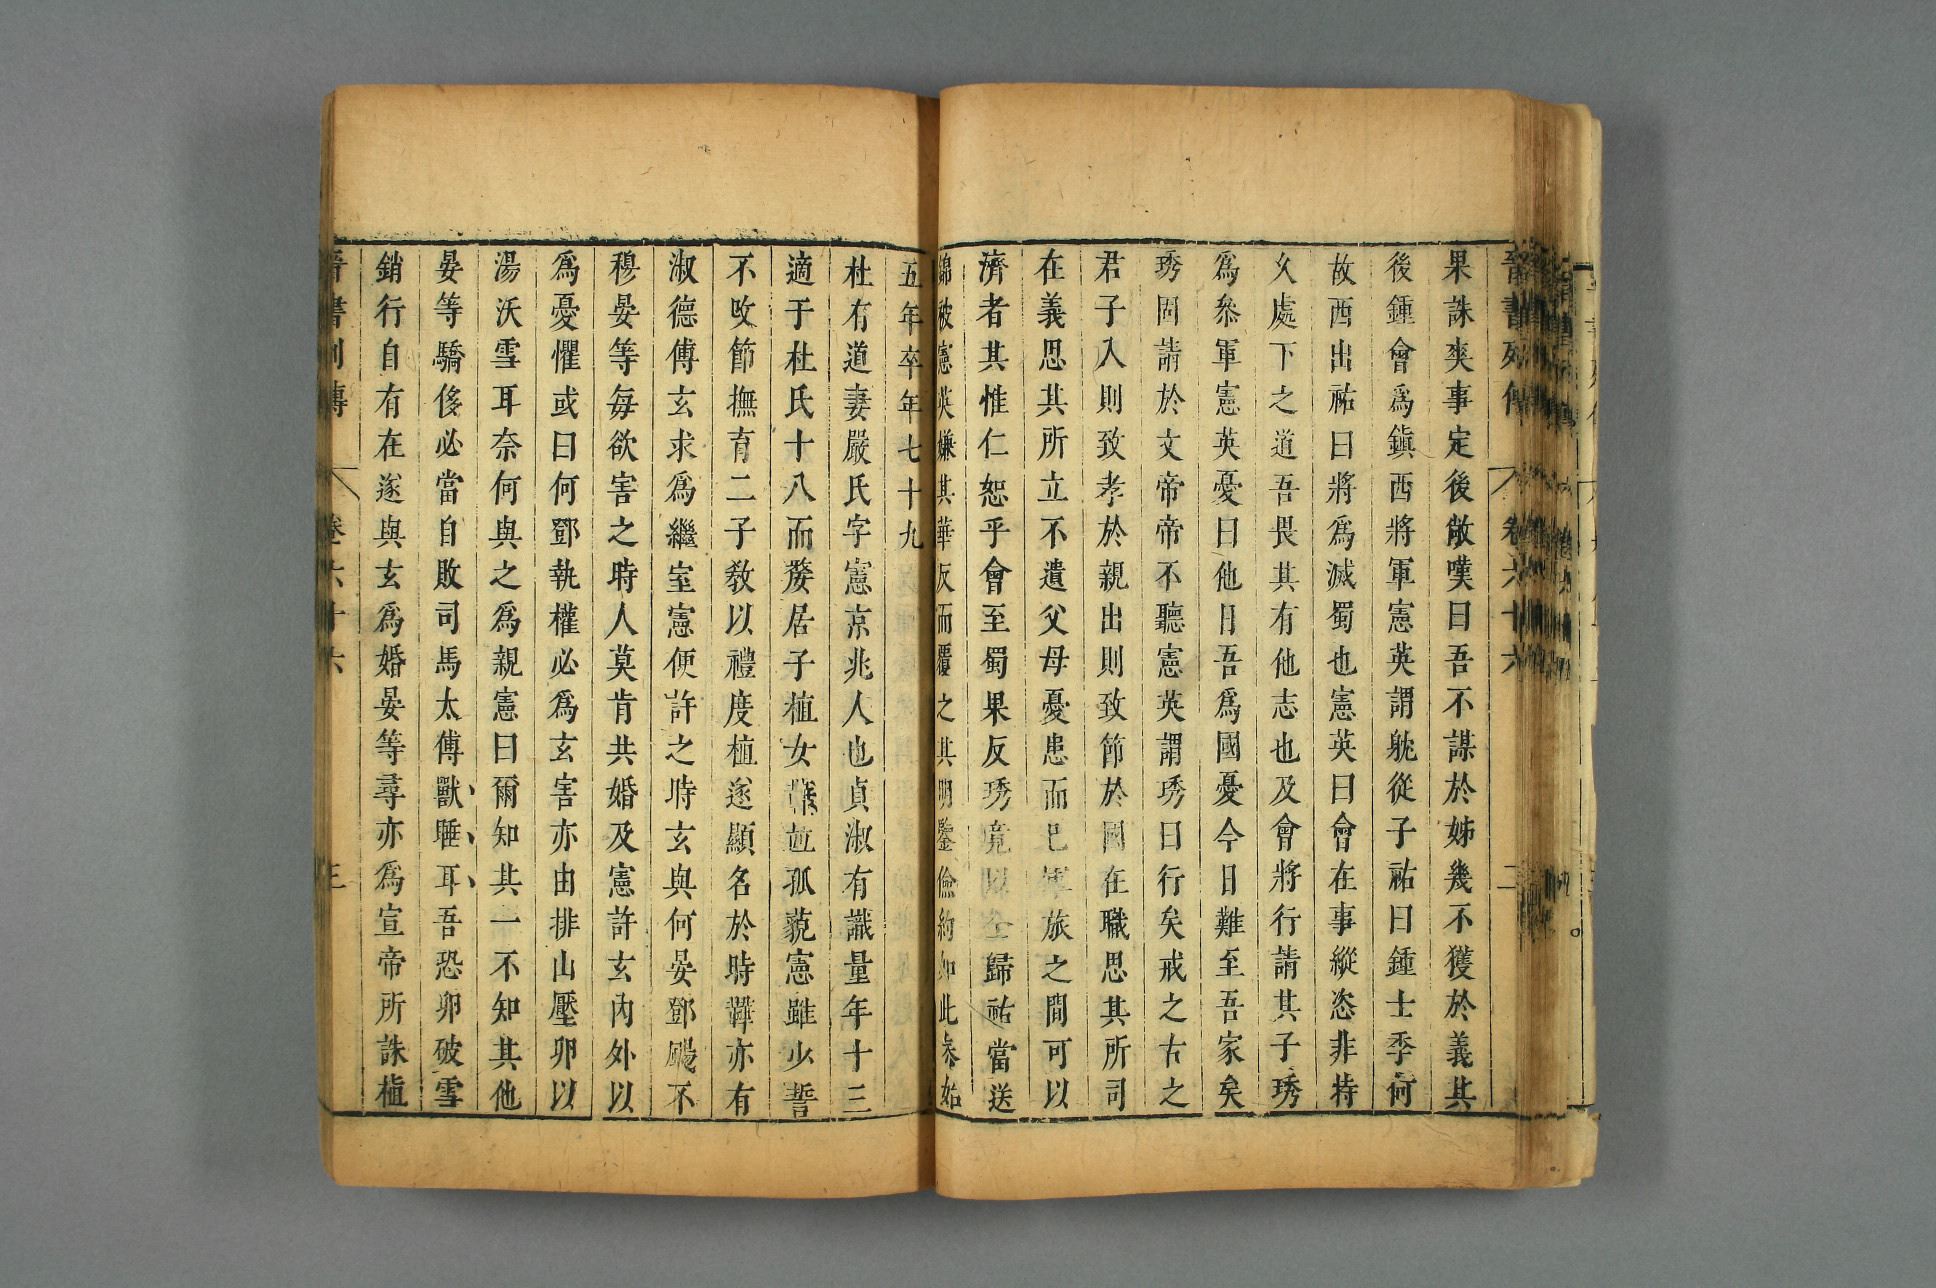 晉書列傳 卷六十六 二
果誅爽事定後敞嘆曰吾不謀於姊幾不獲於義其
後鍾會爲鎭西將軍憲英謂躭從子祐曰鍾士季何
故西出祐曰將爲滅蜀也憲英曰會在事縱恣非持
久處下之道吾畏其有他志也及會將行請其子琇
爲參軍憲英憂曰他日吾爲國憂今日難至吾家矣
琇固請於文帝帝不聽憲英謂琇曰行矣戒之古之
君子入則致孝於親出則致節於國在職思其所司
在義思其所立不遺父母憂患而已軍旅之間可以
濟者其惟仁恕乎會至蜀果反琇竟以全歸祜當送
錦被憲英嫌其華反而覆之其明鑒儉約如此泰始
五年卒年七十九
杜有道妻嚴氏字憲京兆人也貞淑有識量年十三
適于杜氏十八而嫠居子植女韡並孤藐憲雖少誓
不改節撫育二子敎以禮度植遂顯名於時韡亦有
淑德傅玄求爲繼室憲便許之時玄與何晏鄧颺不
穆晏等每欲害之時人莫肯共婚及憲許玄內外以
爲憂懼或曰何鄧執權必爲玄害亦由排山壓卵以
湯沃雪耳奈何與之爲親憲曰爾知其一不知其他
晏等驕侈必當自敗司馬太傅獸睡耳吾恐卵破雪
銷行自有在遂與玄爲婚晏等尋亦爲宣帝所誅植
晉書列傳 卷六十六 三